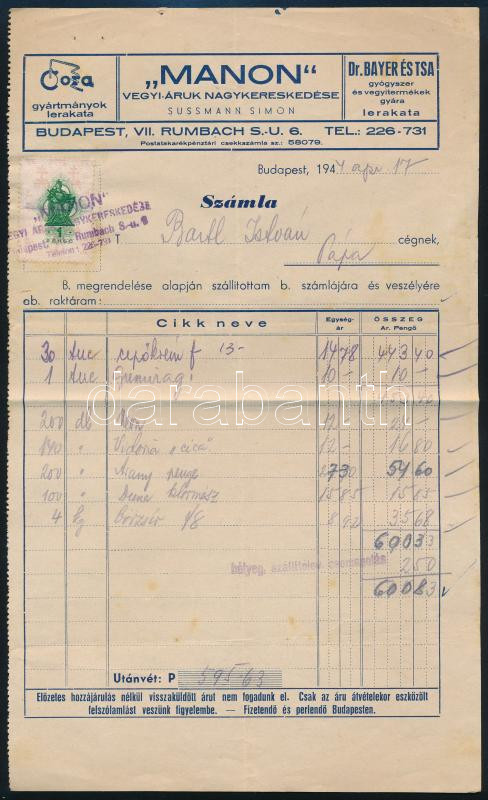 Coza
gyártmányok
lerakata
„MANON“
VEGYI-ÁRUK NAGYKERESKEDÉSE
SUSSMANN SIMON
Dr. BAYER ÉS TSA
gyógyszer
és vegyitermékek
gyára
lerakata
BUDAPEST, VII. RUMBACH S.-U. 6. TEL.: 226-731
Postatakarékpénztári csekkszámla sz.: 58079.
Budapest, 1944 apr 17
Számla
„MANON“
VEGYI-ÁRUK NAGYKERESKEDÉSE
Budapest, Rumbach S.-u. 6
Telefon: 226-731
T. Bartl István cégnek,
Pápa
B. megrendelése alapján szállítottam b. számlájára és veszélyére
ab. raktáram:
Cikk neve Egység-ár ÖSSZEG Ar. Pengő
30 tuc cipőkrém f 13- 14 78 443 40
1 tuc 10 - 10 -
200 db 12
140 " Vidória "cica" 12 - 16 80
200 " Arany penge 273 54 60
100 " Duna 15 85 15 85
4 kg 8 92 35 68
600 33
bélyeg, szállítólev. csomagolás 2 50
600 83
Utánvét: P 595 63
Előzetes hozzájárulás nélkül visszaküldött árut nem fogadunk el. Csak az áru átvételekor eszközölt
felszólamlást veszünk figyelembe. — Fizetendő és perlendő Budapesten.
darabanth